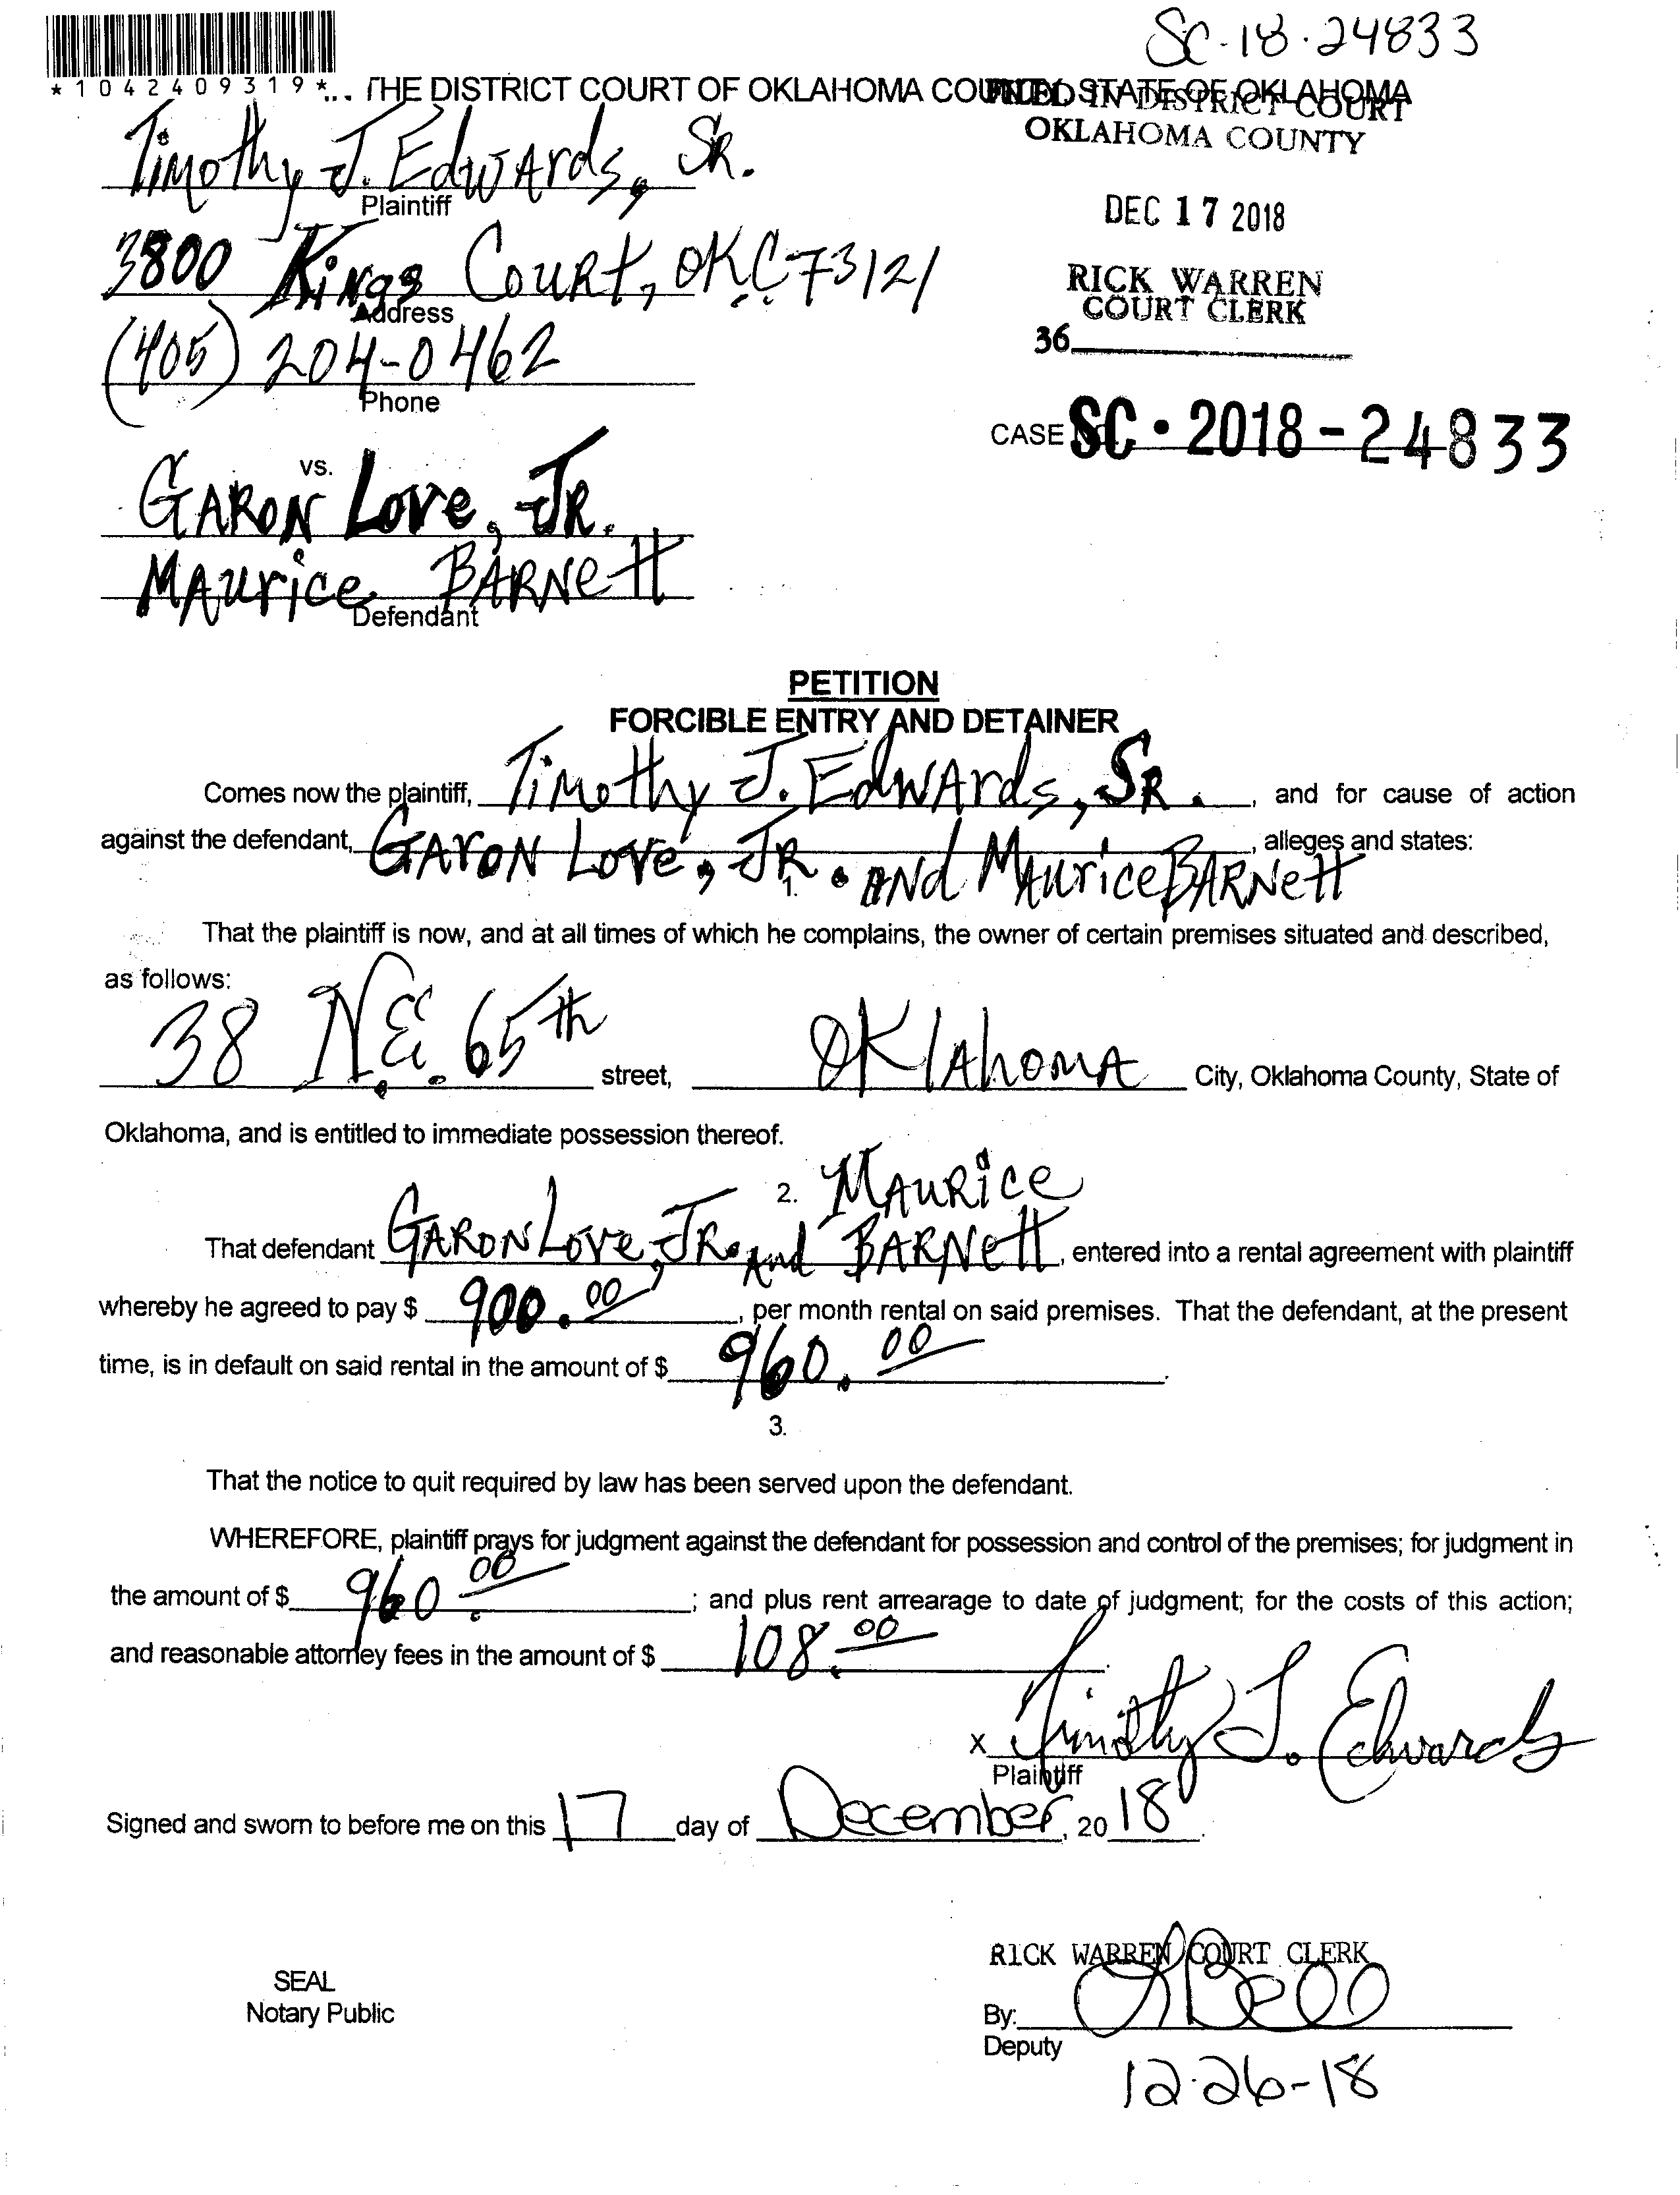 SC-18-24833
*1042409319*
THE DISTRICT COURT OF OKLAHOMA COUNTY, STATE OF OKLAHOMA
FILED IN DISTRICT COURT
OKLAHOMA COUNTY
Timothy J. Edwards, SR.
Plaintiff
DEC 17 2018
3800 Kings Court, OKC 73121
Address
RICK WARREN
COURT CLERK
36
(405) 204-0462
Phone
CASE NO. SC-2018-24833
vs.
GARON Love, JR.
MAurice BARNett
Defendant
PETITION
FORCIBLE ENTRY AND DETAINER
Comes now the plaintiff, Timothy J. EdwArds, SR., and for cause of action
against the defendant, GArON Love, JR. ANd MAurice BARNett, alleges and states:
1.
That the plaintiff is now, and at all times of which he complains, the owner of certain premises situated and described,
as follows:
38 N.E. 65th street, OKlAhomA City, Oklahoma County, State of
Oklahoma, and is entitled to immediate possession thereof.
2. MAuRice
That defendant GARON Love, JR. And BARNett, entered into a rental agreement with plaintiff
whereby he agreed to pay $ 900.00, per month rental on said premises. That the defendant, at the present
time, is in default on said rental in the amount of $ 960.00.
3.
That the notice to quit required by law has been served upon the defendant.
WHEREFORE, plaintiff prays for judgment against the defendant for possession and control of the premises; for judgment in
the amount of $ 960.00; and plus rent arrearage to date of judgment; for the costs of this action;
and reasonable attorney fees in the amount of $ 108.00.
X Timothy J. Edwards
Plaintiff
Signed and sworn to before me on this 17 day of December, 2018.
RICK WARREN COURT CLERK
SEAL
Notary Public
By:
Deputy
12-26-18